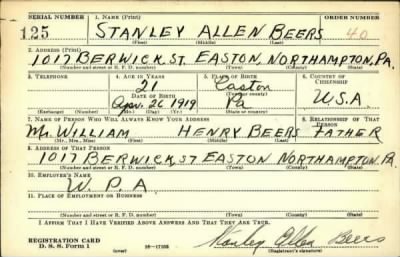 SERIAL NUMBER 1. NAME (Print) ORDER NUMBER
125 STANLEY ALLEN BEERS 40
(First) (Middle) (Last)
2. ADDRESS (Print)
1017 BERWICK ST. EASTON, NORTHAMPTON, PA.
(Number and street or R. F. D. number) (Town) (County) (State)
3. TELEPHONE 4. AGE IN YEARS 5. PLACE OF BIRTH 6. COUNTRY OF CITIZENSHIP
21 Easton
DATE OF BIRTH
Apr. 26 1919 Pa U.S.A.
(Exchange) (Number) (Mo.) (Day) (Yr.) (State or country)
7. NAME OF PERSON WHO WILL ALWAYS KNOW YOUR ADDRESS 8. RELATIONSHIP OF THAT PERSON
Mr. WILLIAM HENRY BEERS FATHER
(Mr., Mrs., Miss) (First) (Middle) (Last)
9. ADDRESS OF THAT PERSON
1017 BERWICK ST EASTON NORTHAMPTON, PA.
(Number and street or R. F. D. number) (Town) (County) (State)
10. EMPLOYER'S NAME
W. P. A.
11. PLACE OF EMPLOYMENT OR BUSINESS
(Number and street or R. F. D. number) (Town) (County) (State)
I AFFIRM THAT I HAVE VERIFIED ABOVE ANSWERS AND THAT THEY ARE TRUE.
REGISTRATION CARD
D. S. S. Form 1 Stanley Allen Beers
(over) (Registrant's signature)